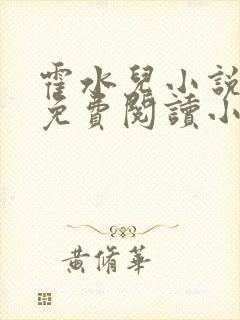 霍水兒小說
免費閱讀小
黃脩華